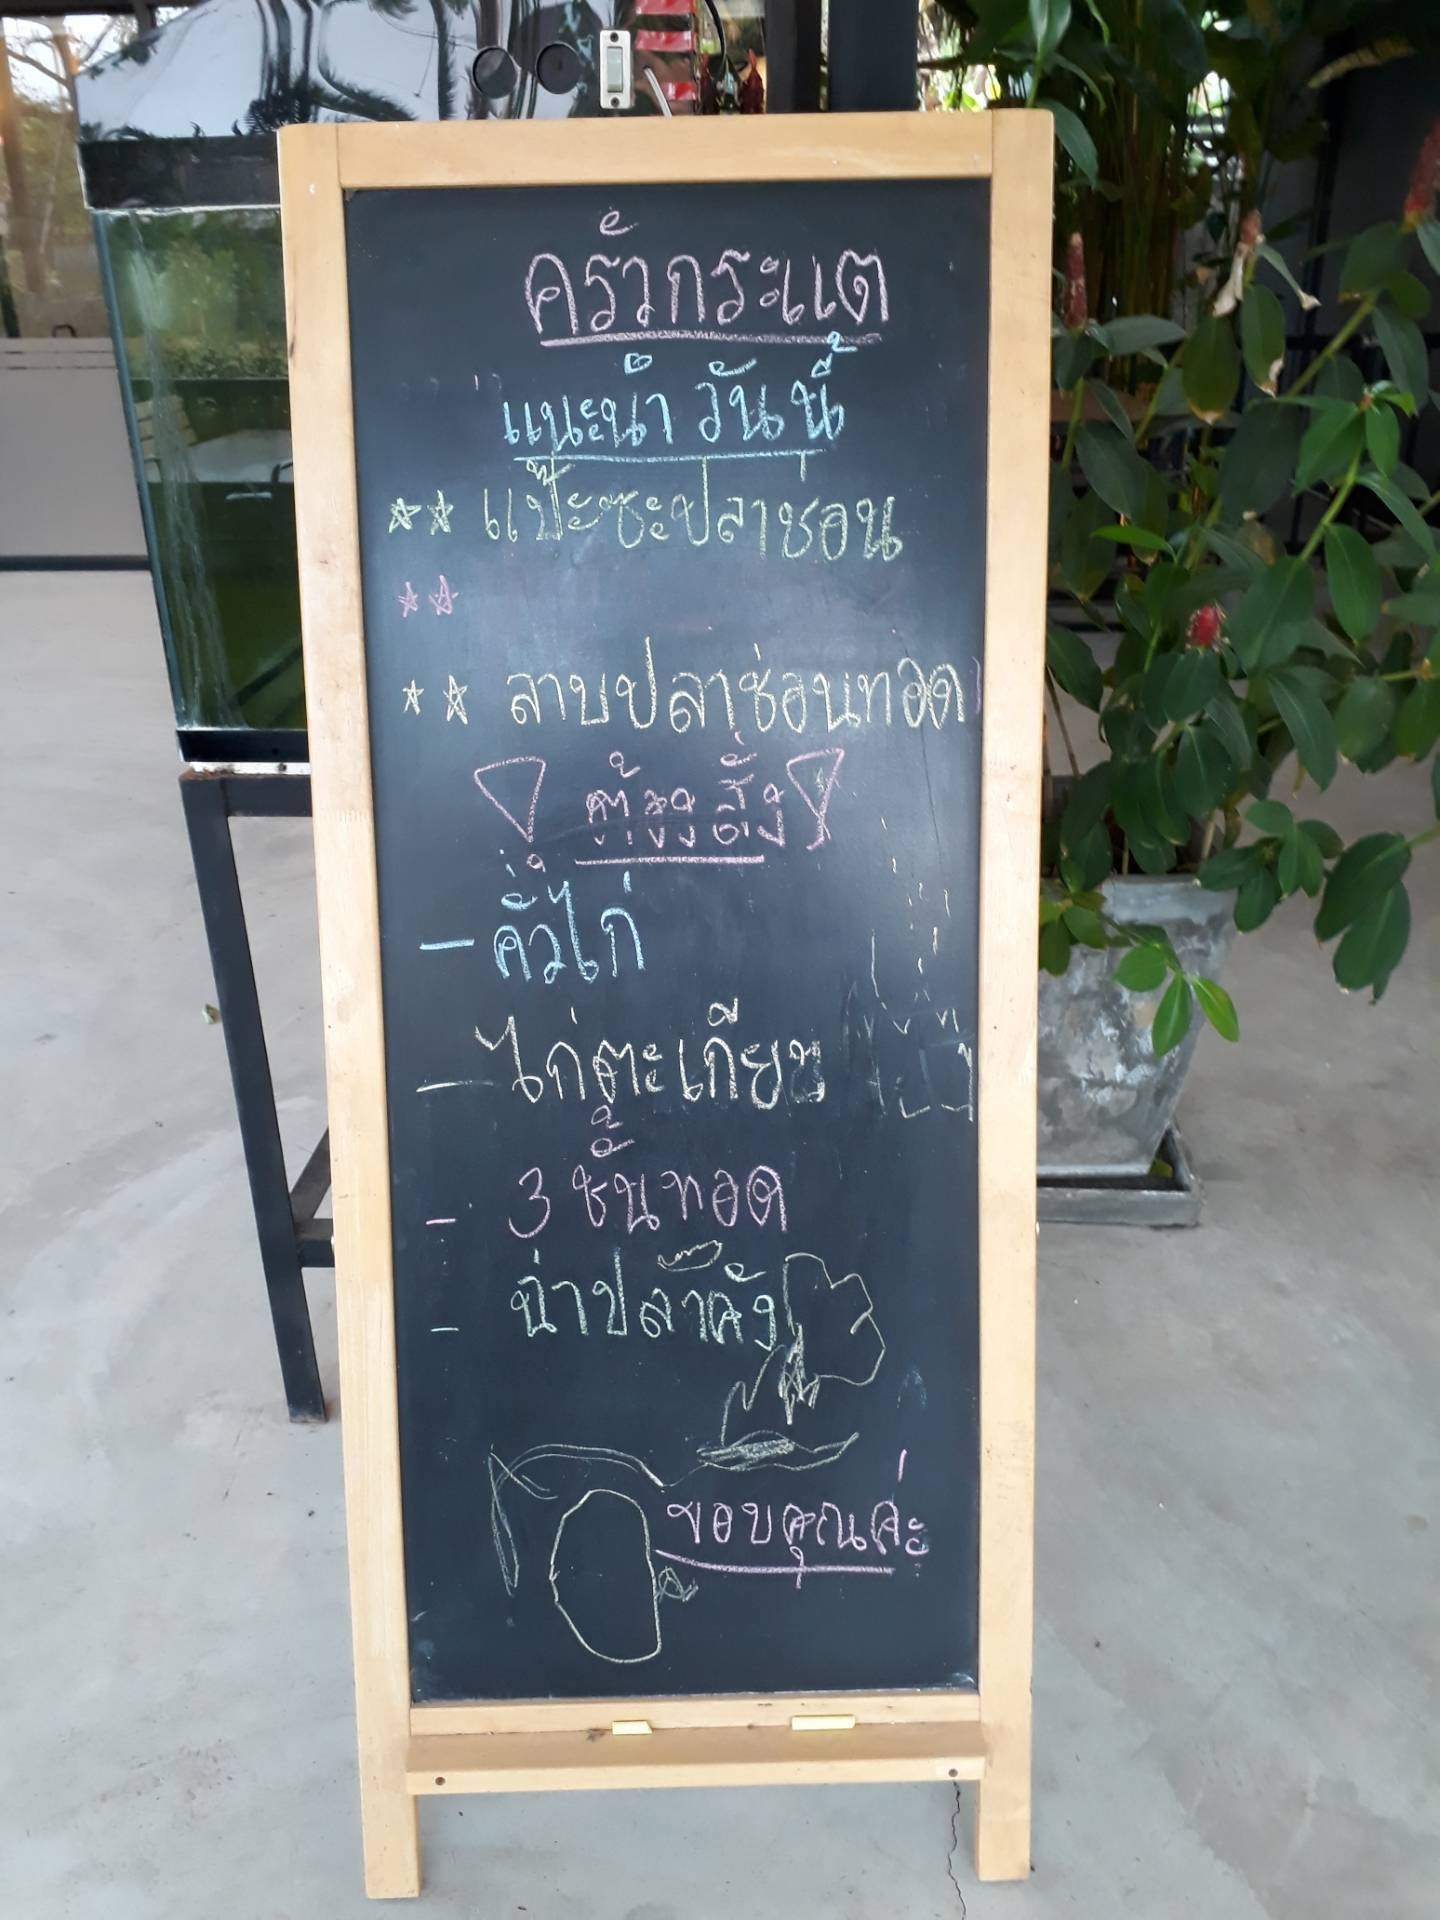 ครัวกระแต
แนะนำวันนี้
แป๊ะซะปลาช่อน
ลาบปลาช่อนทอด
! ต้องสั่ง !
- คั่วไก่
- ไก่ตะเกียบ
- 3 ชั้นทอด
- ฉ่าปลาคัง
ขอบคุณค่ะ